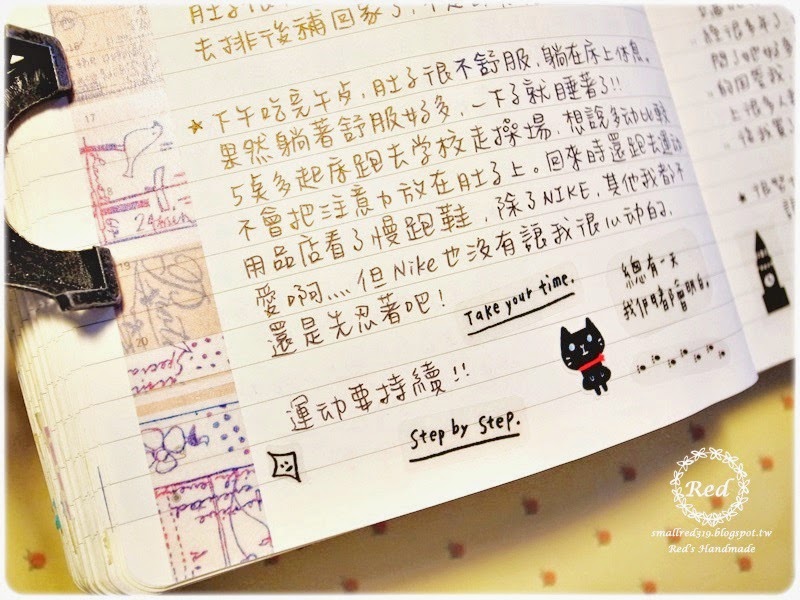 肚子很
去排後補回家了,
下午吃完午点,肚子很不舒服,躺在床上休息。
果然躺著舒服好多,一下子就睡著了!!
5点多起床跑去学校走操場,想說多动比較
不會把注意力放在肚子上。回來時還跑去運动
用品店看了慢跑鞋,除了NIKE,其他我都不
愛啊… 但Nike也沒有讓我很心动的,
還是先忍著吧!
Take your time.
總有一天
我們都會明白。
運动要持續!!
Step by Step.
17
24
19
20
special
很多年了
的回憶我
上很多人
Red
smallred319.blogspot.tw
Red's Handmade